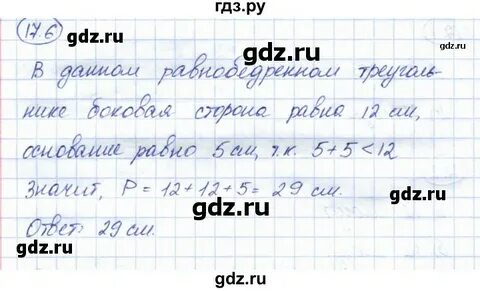 гдз.ру
17.6
В данном равнобедренном треуголь-
нике боковая сторона равна 12 см,
основание равно 5 см, т.к. 5+5<12
Значит, P = 12+12+5 = 29 см.
Ответ: 29 см.
gdz.ru gdz.ru
gdz.ru gdz.ru
gdz.ru gdz.ru